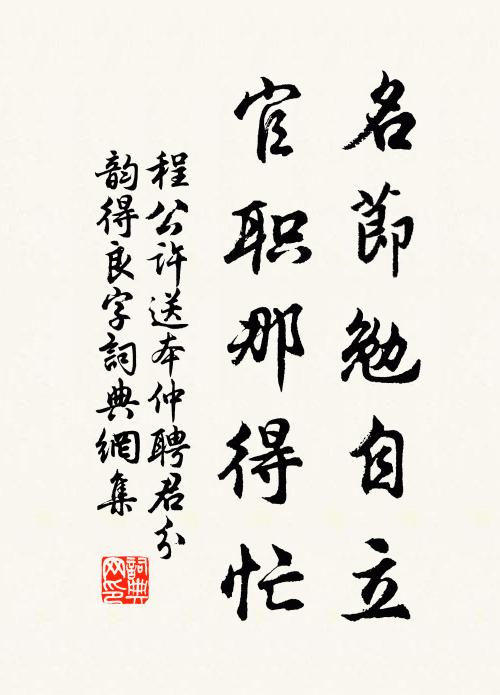 名節勉自立
官职那得忙
程公许送本仲聘君分
韵得良字詞典網集
詞典网印